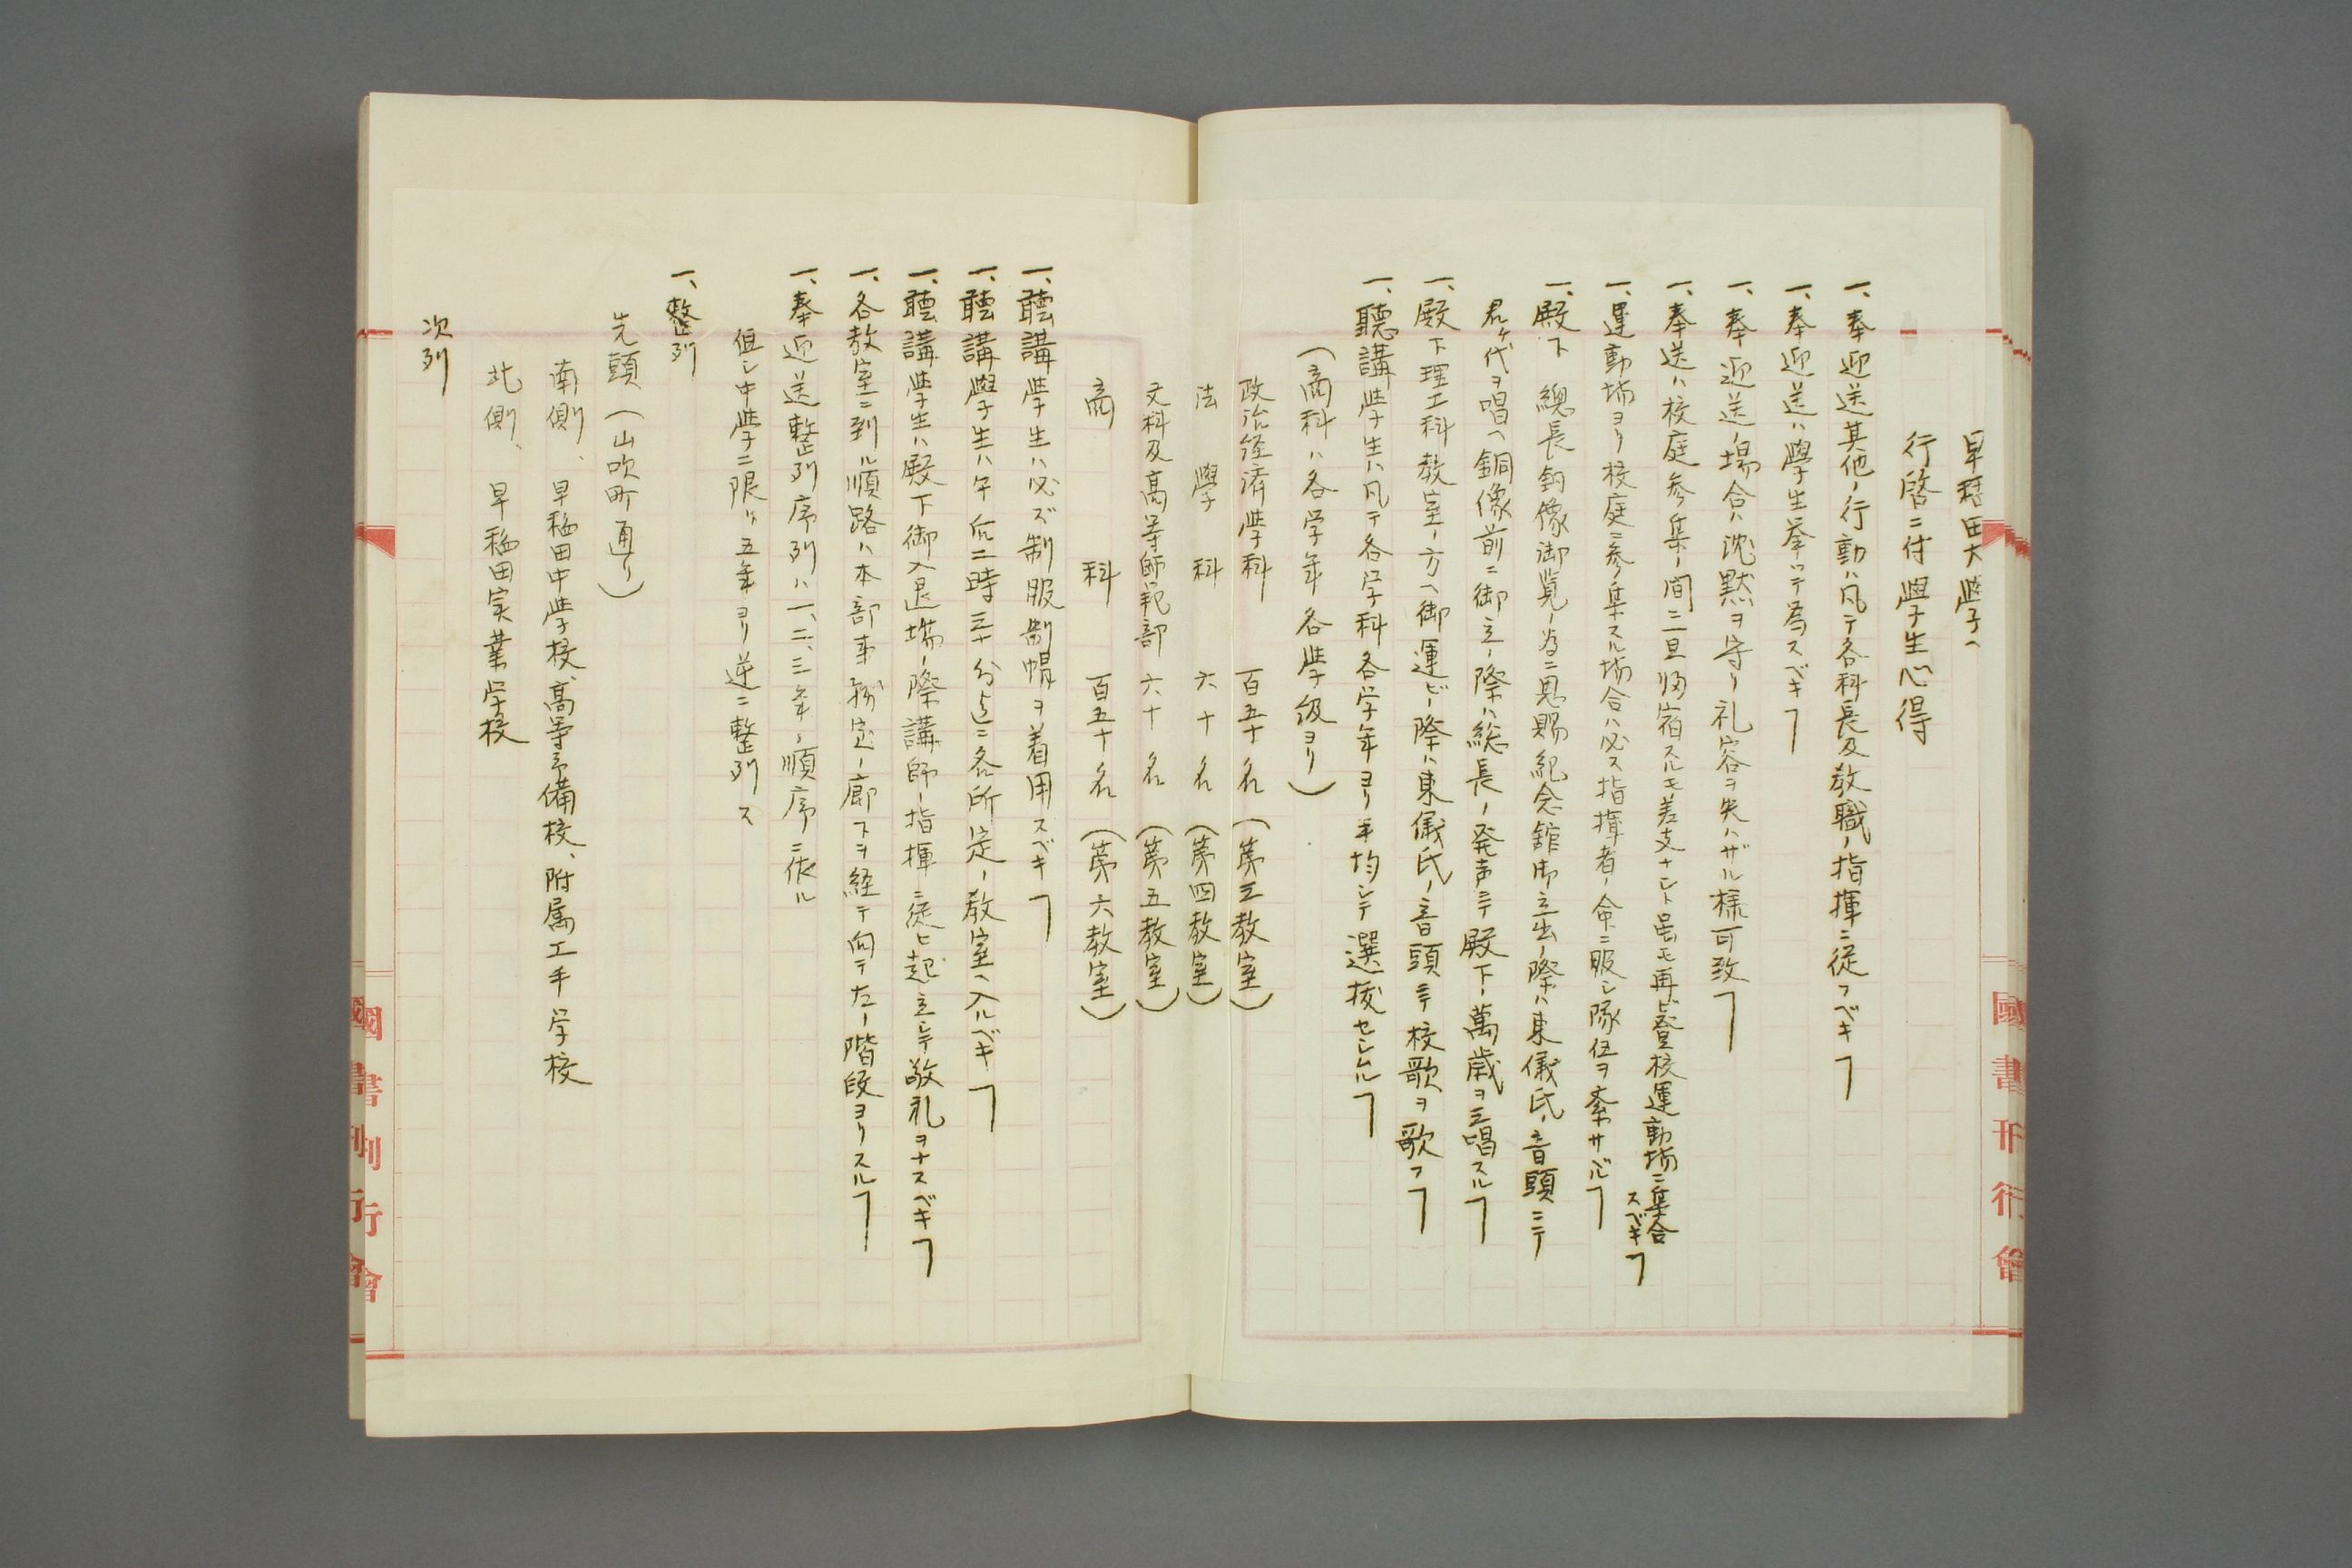 早稲田大學ヘ
行啓ニ付學生心得
一、奉迎送其他ノ行動ハ凡テ各科長及教職ノ指揮ニ従フベキヿ
一、奉迎送ハ學生挙ッテ為スベキヿ
一、奉迎送ノ場合ハ沈黙ヲ守リ礼容ヲ失ハザル様可致ヿ
一、奉送ハ校庭参集ノ間ニ一旦帰宿スルモ差支ナシト虽モ再ビ登校運動場ニ集合スベキヿ
一、運動場ヨリ校庭ニ参集スル場合ハ必ス指揮者ノ命ニ服シ隊伍ヲ紊サヾルヿ
一、殿下 總長銅像御覧ノ為ニ恩賜紀念館御立出ノ際ハ東儀氏ノ音頭ニテ
君ヶ代ヲ唱ヘ銅像前ニ御立ノ際ハ総長ノ発声ニテ殿下ノ萬歳ヲ三唱スルヿ
一、殿下理工科教室ノ方ヘ御運ビノ際ハ東儀氏ノ音頭ニテ校歌ヲ歌フヿ
一、聽講學生ハ凡テ各学科各学年ヨリ平均シテ選抜セシムルヿ
(商科ハ各学年各學級ヨリ)
政治経済學科 百五十名(第三教室)
法學科 六十名(第四教室)
文科及高等師範部 六十名(第五教室)
商科 百五十名(第六教室)
一、聽講學生ハ必ズ制服制帽ヲ着用スベキヿ
一、聽講學生ハ午后二時三十分迄ニ各所定ノ教室ヘ入ルベキヿ
一、聽講學生ハ殿下御入退場ノ際講師ノ指揮ニ従ヒ起立シテ敬礼ヲナスベキヿ
一、各教室ニ到ル順路ハ本部事務室ノ廊下ヲ経テ向テ左ノ階段ヨリスルヿ
一、奉迎送整列序列ハ一、二、三年ノ順序ニ依ル
但シ中學ニ限リ五年ヨリ逆ニ整列ス
一、整列
先頭(山吹町通リ)
南側、早稲田中學校、高等予備校、附属工手学校
北側、早稲田実業学校
次列
國書刊行會
國書刊行會